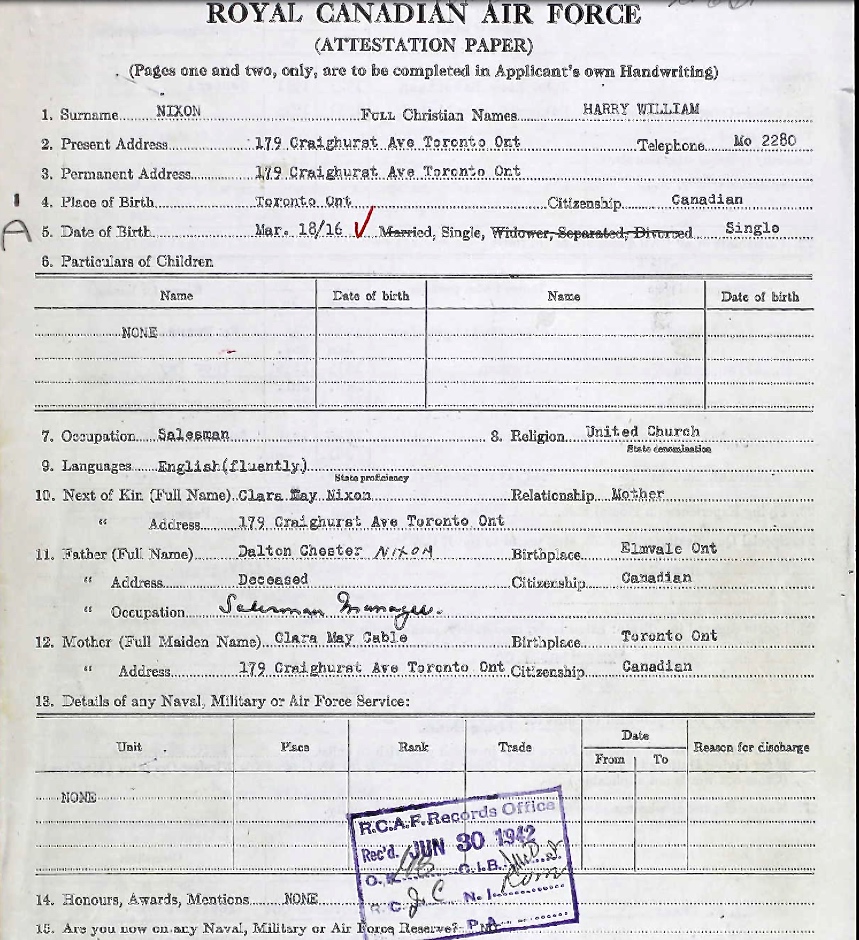 ROYAL CANADIAN AIR FORCE
(ATTESTATION PAPER)
(Pages one and two, only, are to be completed in Applicant's own Handwriting)
1. Surname NIXON Full Christian Names HARRY WILLIAM
2. Present Address 179 Craighurst Ave Toronto Ont Telephone Mo 2280
3. Permanent Address 179 Craighurst Ave Toronto Ont
4. Place of Birth Toronto Ont Citizenship Canadian
A 5. Date of Birth Mar. 18/16 ✓ Married, Single, Widower, Separated, Divorced Single
6. Particulars of Children
Name Date of birth Name Date of birth
NONE
7. Occupation Salesman 8. Religion United Church
State denomination
9. Languages English(fluently)
State proficiency
10. Next of Kin (Full Name) Clara May Nixon Relationship Mother
" Address 179 Craighurst Ave Toronto Ont
11. Father (Full Name) Dalton Chester NIXON Birthplace Elmvale Ont
" Address Deceased Citizenship Canadian
" Occupation Salesman Manager.
12. Mother (Full Maiden Name) Clara May Cable Birthplace Toronto Ont
" Address 179 Craighurst Ave Toronto Ont Citizenship Canadian
13. Details of any Naval, Military or Air Force Service:
Unit Place Rank Trade Date Reason for discharge
From To
NONE
R.C.A.F. Records Office
Rec'd. JUN 30 1942
O. K. C.I.B.
R.C. J.C N. I.
P.A.
14. Honours, Awards, Mentions NONE
15. Are you now on any Naval, Military or Air Force Reserve?